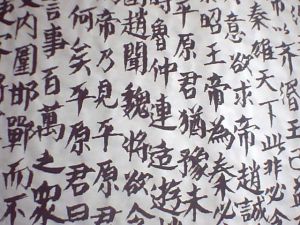 王已
秦雄天下此非必
意欲求帝趙誠
昭王帝為秦必
平原君猶豫未
魯仲連適遊
趙聞魏將欲令
帝乃見平原君
何矣平原君曰
言事百萬之眾
內圍邯鄲而不